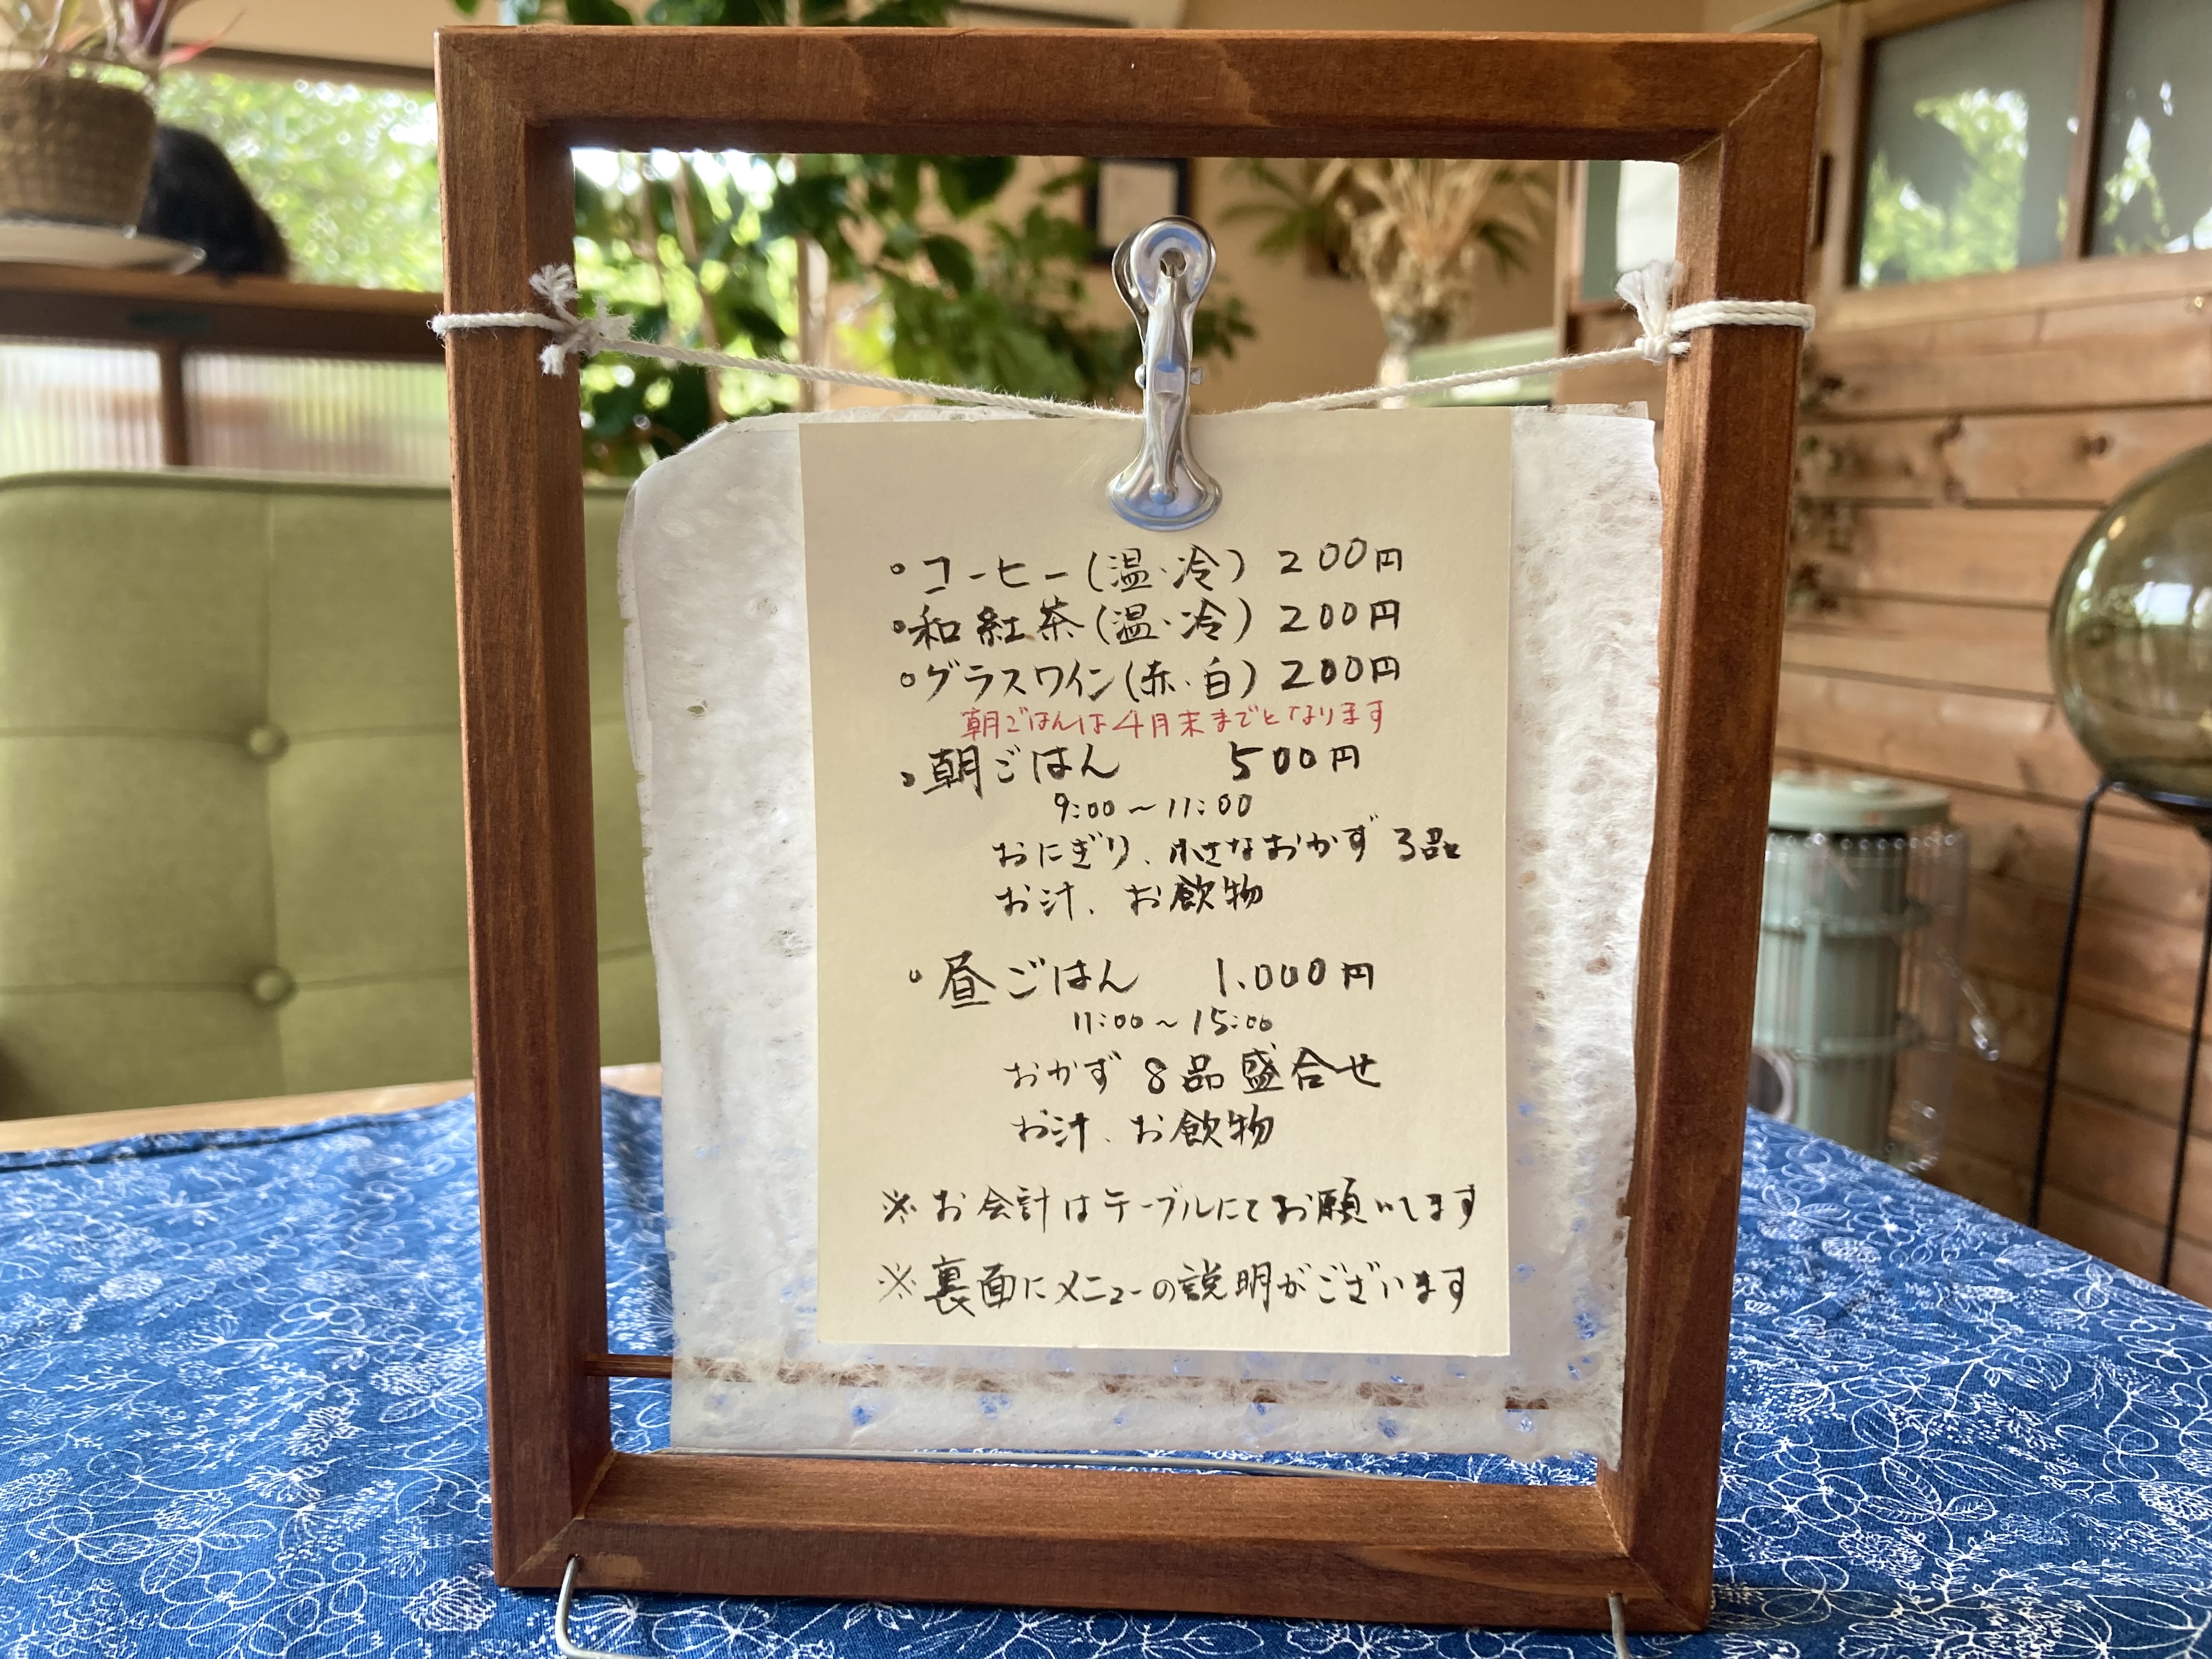 ・コーヒー(温・冷) 200円
・和紅茶(温・冷) 200円
・グラスワイン(赤・白) 200円
朝ごはんは4月末までとなります
・朝ごはん 500円
9:00～11:00
おにぎり、小さなおかず3品
お汁、お飲物
・昼ごはん 1.000円
11:00～15:00
おかず8品盛合せ
お汁、お飲物
※お会計はテーブルにてお願いします
※裏面にメニューの説明がございます